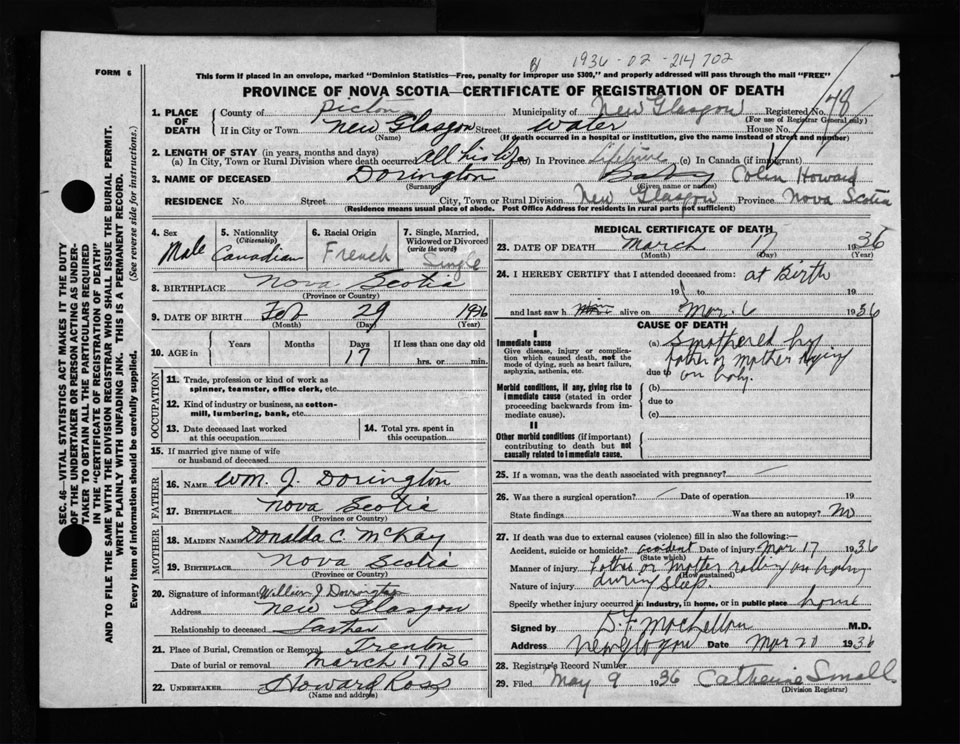 1936-02-214702
FORM 6
This form if placed in an envelope, marked "Dominion Statistics—Free, penalty for improper use $300," and properly addressed will pass through the mail "FREE"
PROVINCE OF NOVA SCOTIA—CERTIFICATE OF REGISTRATION OF DEATH
1. PLACE OF DEATH County of Pictou Municipality of New Glasgow Registered No.
(For use of Registrar General only)
If in City or Town New Glasgow Street Water House No.
(Name) (If death occurred in a hospital or institution, give the name instead of street and number)
2. LENGTH OF STAY (in years, months and days)
(a) In City, Town or Rural Division where death occurred All his life (b) In Province Lifetime (c) In Canada (if immigrant)
3. NAME OF DECEASED Dorington Baby Colin Howard
(Surname) (Given name or names)
RESIDENCE No. Street City, Town or Rural Division New Glasgow Province Nova Scotia
(Residence means usual place of abode. Post Office Address for residents in rural parts not sufficient)
4. Sex Male
5. Nationality (Citizenship) Canadian
6. Racial Origin French
7. Single, Married, Widowed or Divorced (write the word) Single
8. BIRTHPLACE Nova Scotia
(Province or Country)
9. DATE OF BIRTH Feb 29 1936
(Month) (Day) (Year)
10. AGE in Years Months Days 17 If less than one day old
hrs. or min.
OCCUPATION
11. Trade, profession or kind of work as spinner, teamster, office clerk, etc.
12. Kind of industry or business, as cotton-mill, lumbering, bank, etc.
13. Date deceased last worked at this occupation
14. Total yrs. spent in this occupation
15. If married give name of wife or husband of deceased
FATHER
16. NAME Wm. J. Dorington
17. BIRTHPLACE Nova Scotia
(Province or Country)
MOTHER
18. MAIDEN NAME Donalda C. McKay
19. BIRTHPLACE Nova Scotia
(Province or Country)
20. Signature of informant William J. Dorrington
Address New Glasgow
Relationship to deceased Father
21. Place of Burial, Cremation or Removal Trenton
Date of burial or removal March 17/36
22. UNDERTAKER Howard Ross
(Name and address)
MEDICAL CERTIFICATE OF DEATH
23. DATE OF DEATH March 17 1936
(Month) (Day) (Year)
24. I HEREBY CERTIFY that I attended deceased from: at Birth
19 to 19
and last saw h alive on Mar. 6 1936
CAUSE OF DEATH
I
Immediate cause
Give disease, injury or complication which caused death, not the mode of dying, such as heart failure, asphyxia, asthenia, etc.
(a) Smothered by
father or mother lying
due to on baby.
Morbid conditions, if any, giving rise to immediate cause (stated in order proceeding backwards from immediate cause).
(b)
due to
(c)
II
Other morbid conditions (if important) contributing to death but not causally related to immediate cause.
25. If a woman, was the death associated with pregnancy?
26. Was there a surgical operation? Date of operation 19
State findings Was there an autopsy? No
27. If death was due to external causes (violence) fill in also the following:—
Accident, suicide or homicide? accident Date of injury Mar 17 1936
(State which)
Manner of injury Father or Mother rolling on baby
(How sustained)
Nature of injury during sleep
Specify whether injury occurred in industry, in home, or in public place home
Signed by M.D.
Address New Glasgow Date Mar 20 1936
28. Registrar's Record Number
29. Filed May 9 1936 Catherine Small
(Division Registrar)
SEC. 46—VITAL STATISTICS ACT MAKES IT THE DUTY
OF THE UNDERTAKER OR PERSON ACTING AS UNDER-
TAKER TO OBTAIN ALL THE PARTICULARS REQUIRED
IN THE "CERTIFICATE OF REGISTRATION OF DEATH"
AND TO FILE THE SAME WITH THE DIVISION REGISTRAR WHO SHALL ISSUE THE BURIAL PERMIT.
WRITE PLAINLY WITH UNFADING INK. THIS IS A PERMANENT RECORD.
Every item of information should be carefully supplied. (See reverse side for instructions.)